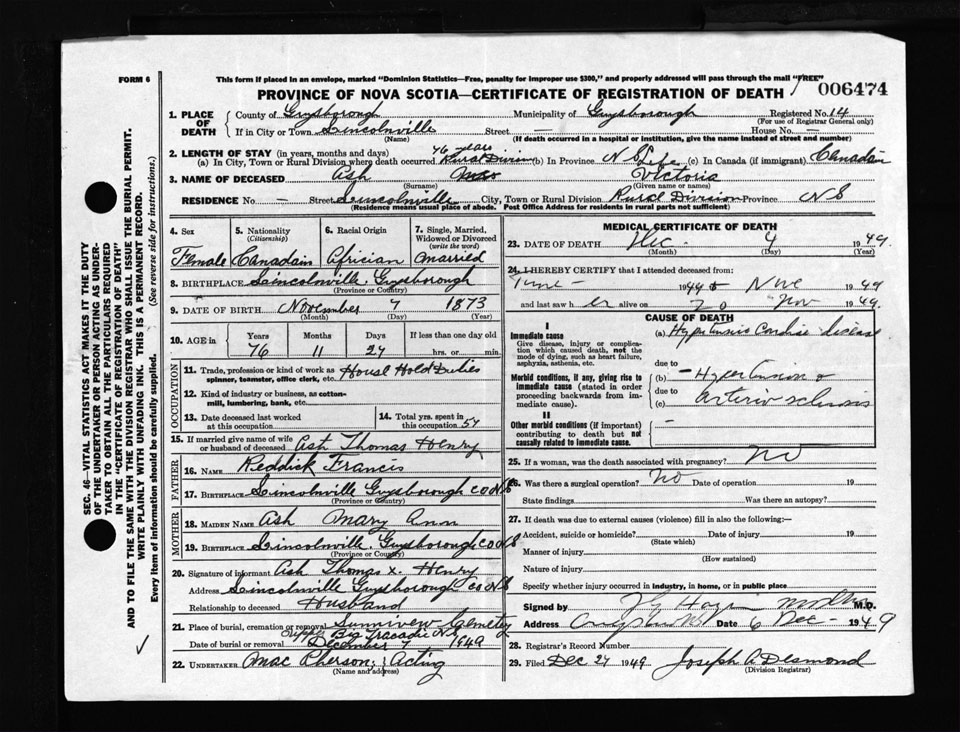 FORM 6
This form if placed in an envelope, marked "Dominion Statistics—Free, penalty for improper use $300," and properly addressed will pass through the mail "FREE"
PROVINCE OF NOVA SCOTIA—CERTIFICATE OF REGISTRATION OF DEATH 006474
1. PLACE OF DEATH County of Guysborough Municipality of Guysborough Registered No. 14
(For use of Registrar General only)
If in City or Town Lincolnville Street — House No. —
(Name) (If death occurred in a hospital or institution, give the name instead of street and number)
2. LENGTH OF STAY (in years, months and days) 76 years
(a) In City, Town or Rural Division where death occurred Rural Division (b) In Province N S Life (c) In Canada (if immigrant) Canadain
3. NAME OF DECEASED Ash Mrs Victoria
(Surname) (Given name or names)
RESIDENCE No. — Street Lincolnville City, Town or Rural Division Rural Division Province N S
(Residence means usual place of abode. Post Office Address for residents in rural parts not sufficient)
4. Sex 5. Nationality (Citizenship) 6. Racial Origin 7. Single, Married, Widowed or Divorced (write the word)
Female Canadain African Married
8. BIRTHPLACE Lincolnville, Guysborough
(Province or Country)
9. DATE OF BIRTH November 7 1873
(Month) (Day) (Year)
10. AGE in Years Months Days If less than one day old
76 11 27 hrs. or min.
OCCUPATION
11. Trade, profession or kind of work as spinner, teamster, office clerk, etc. House Hold Duties
12. Kind of industry or business, as cotton-mill, lumbering, bank, etc.
13. Date deceased last worked at this occupation
14. Total yrs. spent in this occupation 54
15. If married give name of wife or husband of deceased Ash Thomas Henry
FATHER
16. NAME Reddick Francis
17. BIRTHPLACE Lincolnville Guysborough CO NS
(Province or Country)
MOTHER
18. MAIDEN NAME Ash Mary Ann
19. BIRTHPLACE Lincolnville. Guysborough CO NS
(Province or Country)
20. Signature of informant Ash Thomas X. Henry
Address Lincolnville Guysborough CO NS
Relationship to deceased Husband
21. Place of burial, cremation or removal Sunnivew Cemetry
Upper Big Tracadie NS
Date of burial or removal December 7 1949
22. UNDERTAKER Mac Pherson; Acting
(Name and address)
MEDICAL CERTIFICATE OF DEATH
23. DATE OF DEATH Dec. 4 1949.
(Month) (Day) (Year)
24. I HEREBY CERTIFY that I attended deceased from:
June 1949 to Nov 1949
and last saw her alive on 20 Nov 1949.
CAUSE OF DEATH
I
Immediate cause
Give disease, injury or complication which caused death, not the mode of dying, such as heart failure, asphyxia, asthenia, etc.
(a) Hypertensive Cardiac disease
due to
Morbid conditions, if any, giving rise to immediate cause (stated in order proceeding backwards from immediate cause).
(b) Hypertension &
due to
(c) arterio sclerosis
II
Other morbid conditions (if important) contributing to death but not causally related to immediate cause.
—
25. If a woman, was the death associated with pregnancy? No
26. Was there a surgical operation? No Date of operation 19
State findings Was there an autopsy?
27. If death was due to external causes (violence) fill in also the following:—
Accident, suicide or homicide? Date of injury 19
(State which)
Manner of injury
(How sustained)
Nature of injury
Specify whether injury occurred in industry, in home, or in public place
Signed by M.D.
Address Date 6 Dec - 1949
28. Registrar's Record Number
29. Filed Dec 27 1949 Joseph A Desmond
(Division Registrar)
SEC. 46—VITAL STATISTICS ACT MAKES IT THE DUTY
OF THE UNDERTAKER OR PERSON ACTING AS UNDER-
TAKER TO OBTAIN ALL THE PARTICULARS REQUIRED
IN THE "CERTIFICATE OF REGISTRATION OF DEATH"
AND TO FILE THE SAME WITH THE DIVISION REGISTRAR WHO SHALL ISSUE THE BURIAL PERMIT.
WRITE PLAINLY, WITH UNFADING INK. THIS IS A PERMANENT RECORD.
Every item of information should be carefully supplied. (See reverse side for instructions.)